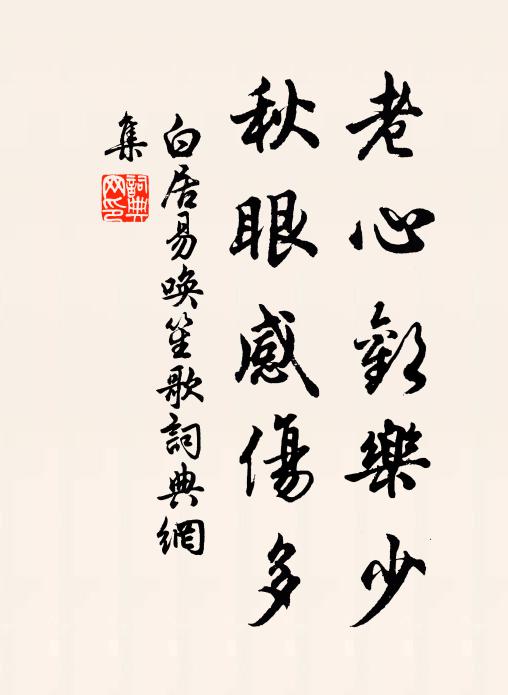 老心歡樂少
秋眼感傷多
白居易喚笙歌詞典網
集
詞典
网印